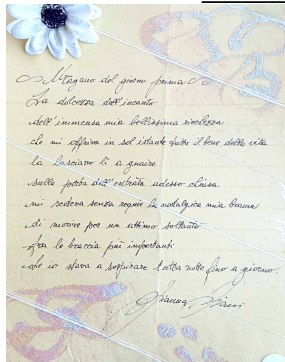 L'Uragano del giorno prima
La dolcezza dell'incanto
dell'immensa mia bellissima ricchezza
che mi offriva in sol istante tutto il bene della vita
la lasciavo lì a guaire
sulla porta dell'entrata adesso chiusa
mi scoteva senza requie la nostalgica mia brama
di morire per un attimo soltanto
fra le braccia più importanti
che io stava a sospirare tutta notte fino a giorno.
Gianna